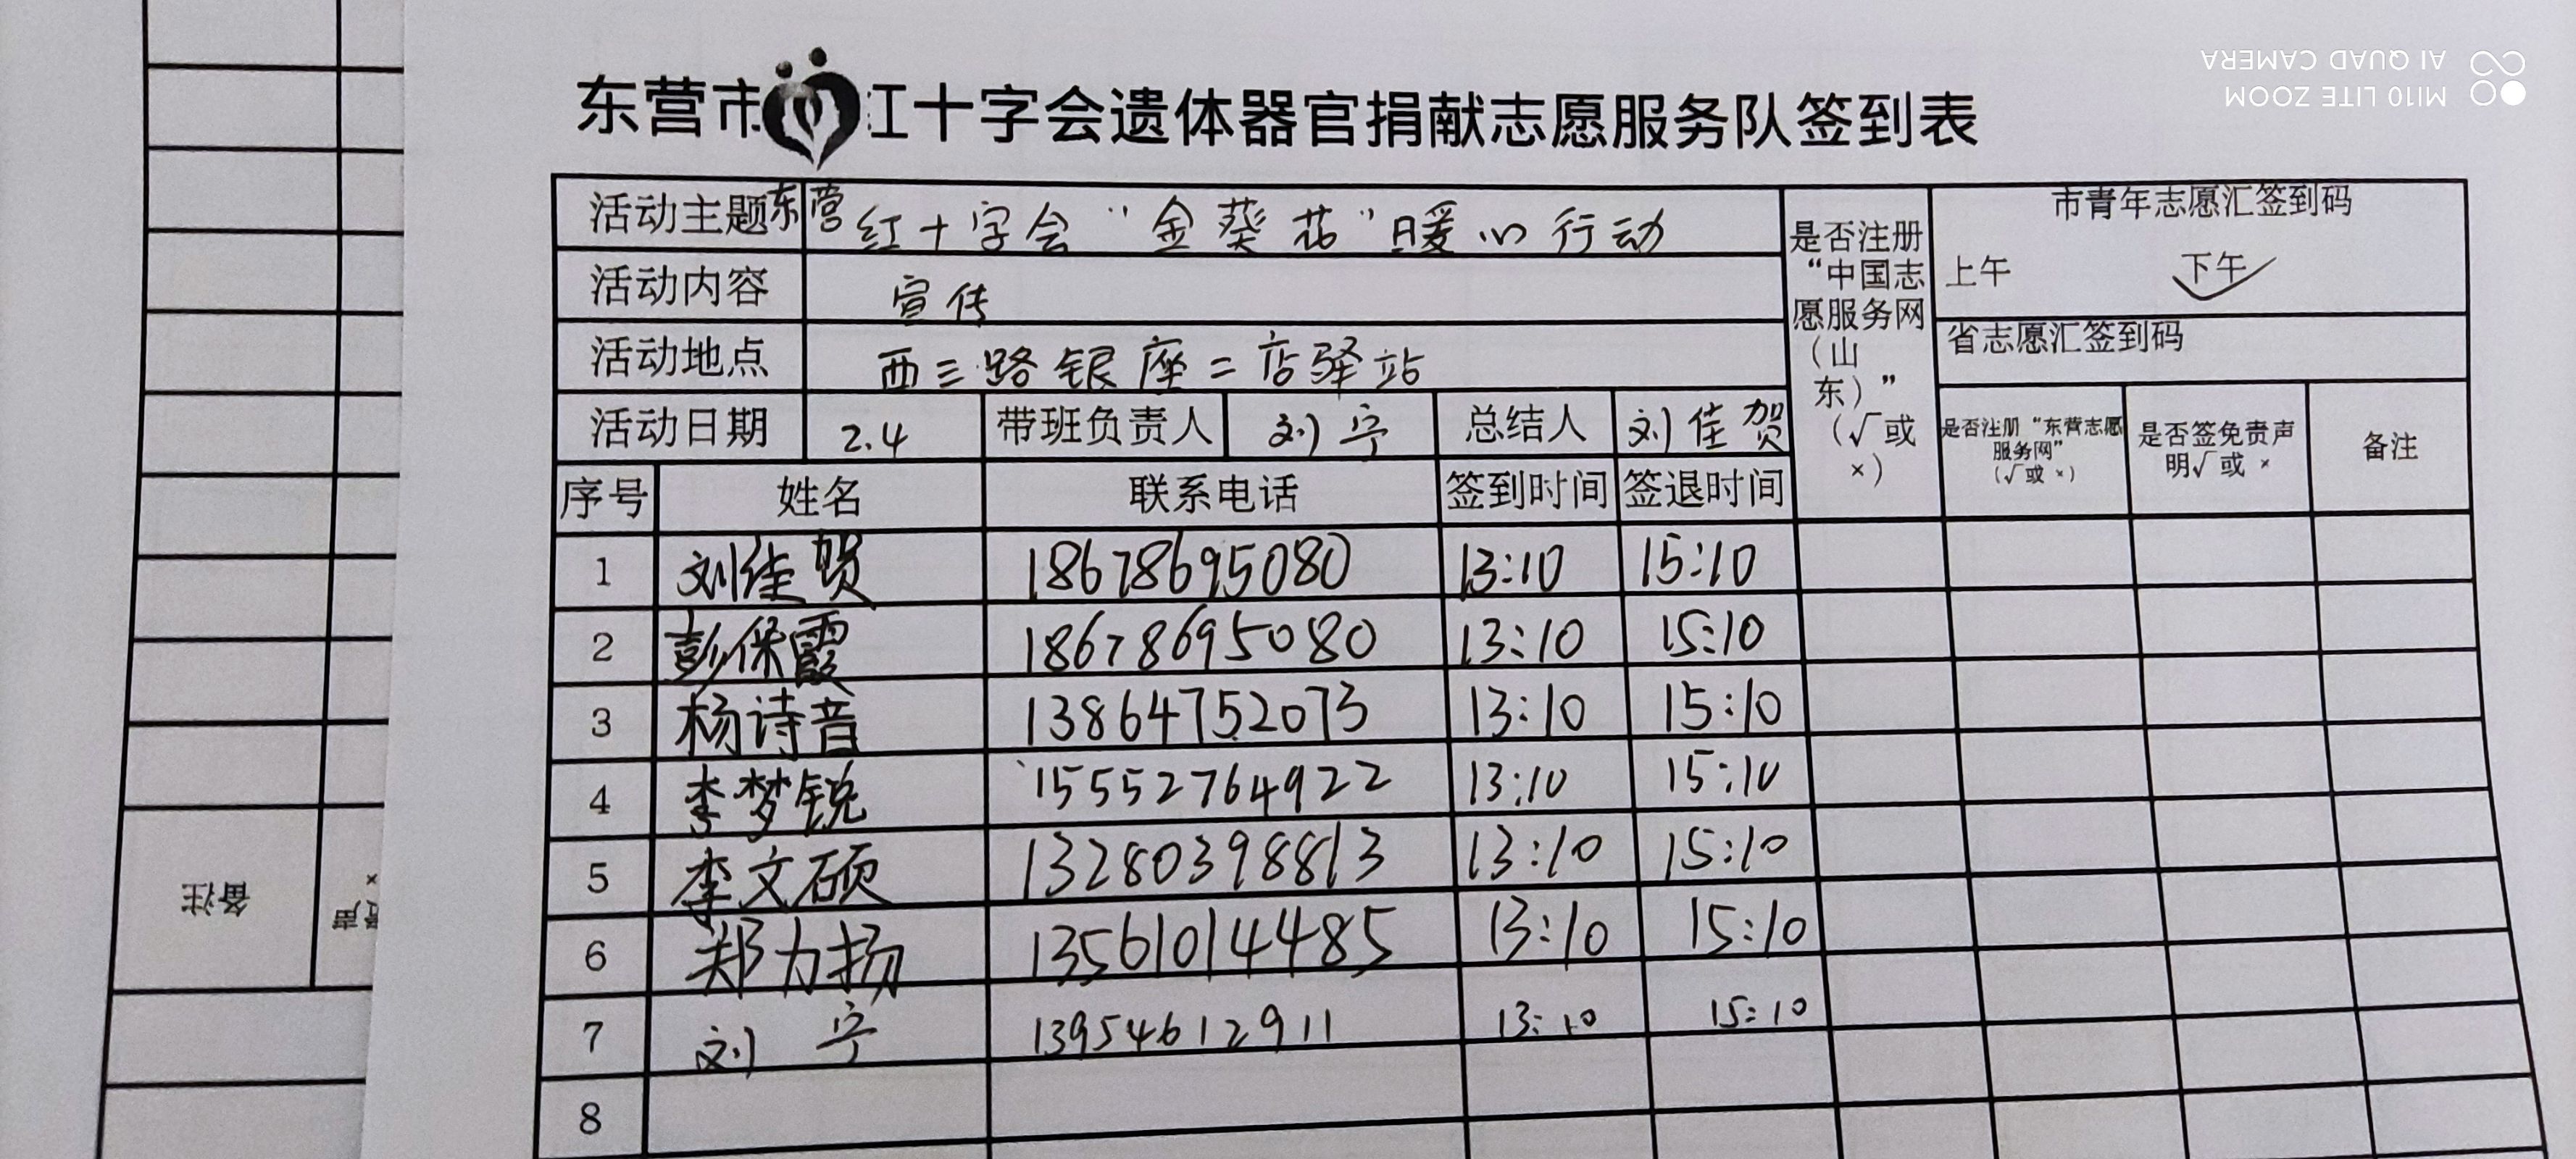 东营市红十字会遗体器官捐献志愿服务队签到表
活动主题 东营红十字会“金葵花”暖心行动
活动内容 宣传
活动地点 西三路银座二店驿站
活动日期 2.4 带班负责人 刘宁 总结人 刘佳贺
是否注册
“中国志
愿服务网
（山
东）”
（√或
×）
市青年志愿汇签到码
上午 下午✓
省志愿汇签到码
是否注册“东营志愿
服务网”
（√或 ×）
是否签免责声
明√或 ×
备注
序号 姓名 联系电话 签到时间 签退时间
1 刘佳贺 18678695080 13:10 15:10
2 彭保霞 18678695080 13:10 15:10
3 杨诗音 13864752073 13:10 15:10
4 李梦锐 15552764922 13:10 15:10
5 李文硕 13280398813 13:10 15:10
6 郑力扬 13561014485 13:10 15:10
7 刘宁 13954612911 13:10 15:10
8
备注
MI 10 LITE ZOOM
AI QUAD CAMERA